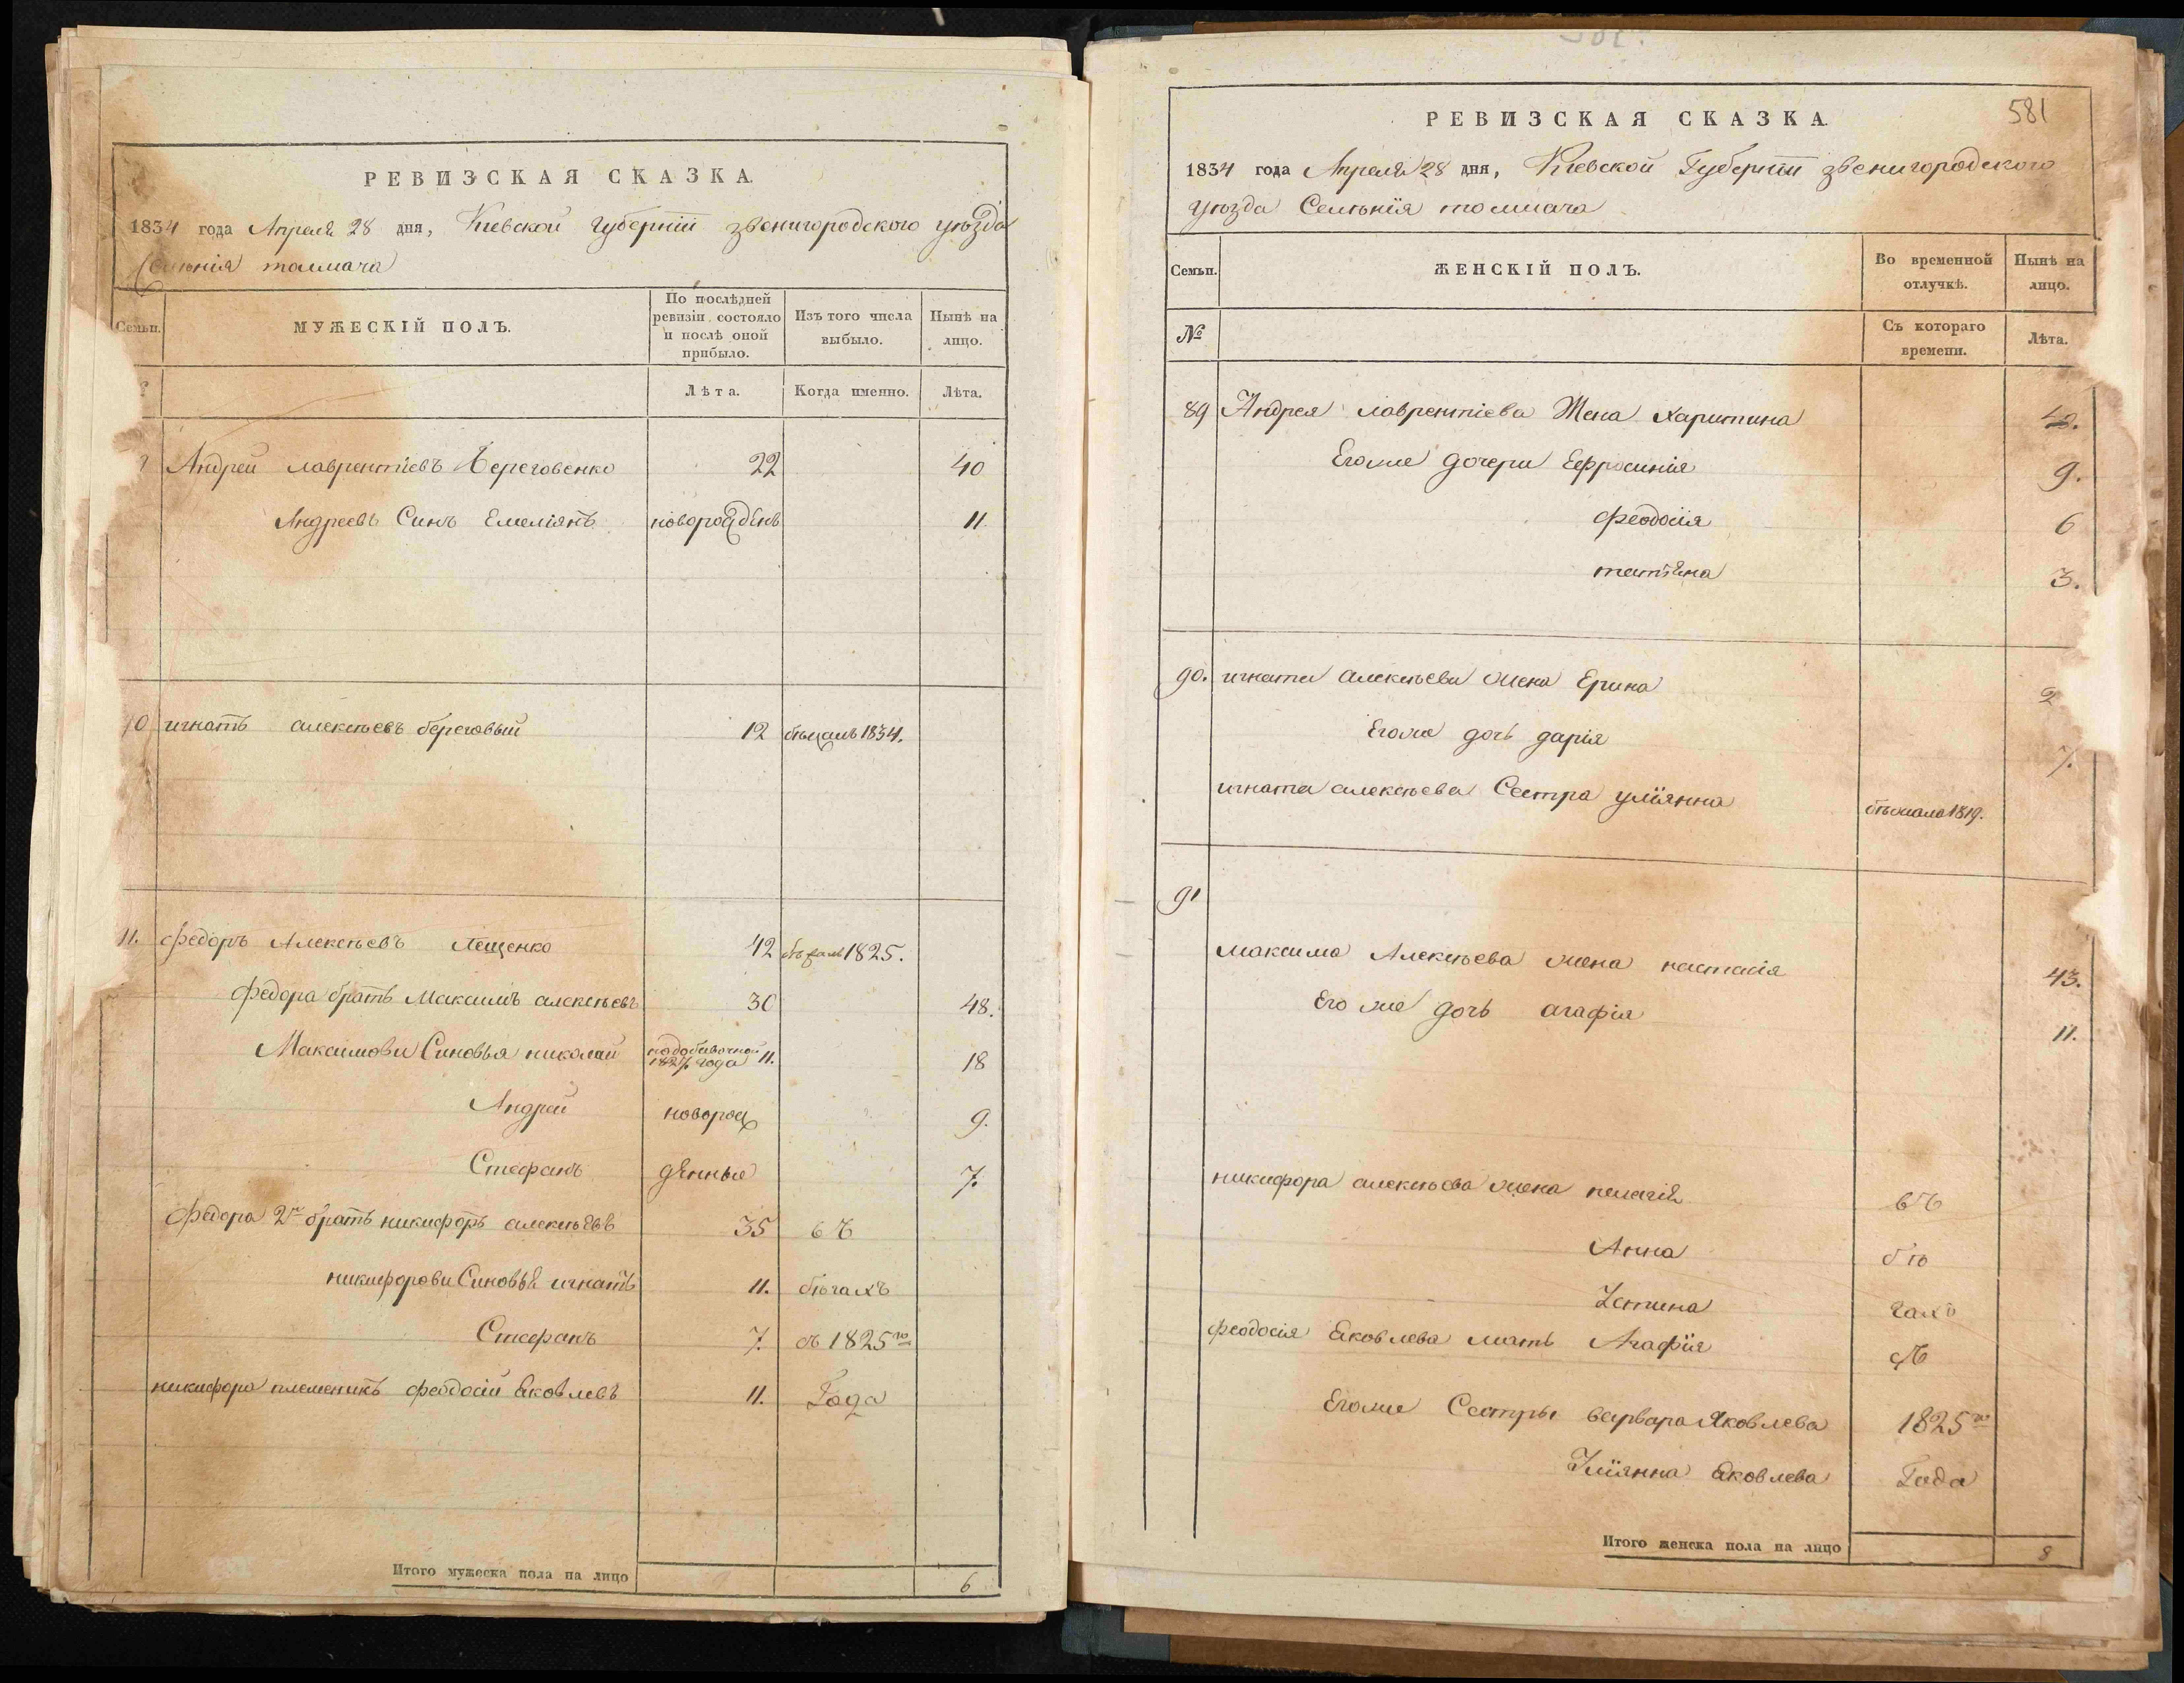 РЕВИЗСКАЯ СКАЗКА.
1834 года Апреля 28 дня, Киевской Губерніи звенигородского уѣзда
Селѣнія толмача
Семьи. МУЖЕСКІЙ ПОЛЪ. По послѣдней ревизіи состояло и послѣ оной прибыло. Изъ того числа выбыло. Нынѣ на лицо.
Лѣта. Когда именно. Лѣта.
Андрей лаврентіевъ 22 40
Андреевъ Синъ Емеліянъ новорождѣнъ 11
игнатъ алексѣевъ береговый 12 1834.
федоръ Алексѣевъ Лещенко 42 1825.
федора братъ Максимъ алексѣевъ 30 48.
Максимови Синовья николай 11. 18
1827 года
Андрей новорож 9.
Стефанъ дѣнные 7.
федора 2й братъ никифоръ алексѣевъ 35 въ
никифорови Синовья игнатъ 11. бѣгахъ
Стефанъ 7. съ 1825го
никифора племеникъ феодосій Яковлевъ 11. Года
Итого мужеска пола на лицо 6
581
РЕВИЗСКАЯ СКАЗКА.
1834 года Апреля 28 дня, Киевской Губерніи звенигородского
уѣзда Селѣнія толмача
Семьи. ЖЕНСКІЙ ПОЛЪ. Во временной отлучкѣ. Нынѣ на лицо.
№ Съ котораго времени. Лѣта.
89 Андрея лаврентіева Жена харитина
Егоже дочери Ефросинія 9.
феодосія 6
татіяна 3.
90. игната алексѣева жена Ерина
Егоже дочь дарія 7.
игната алексѣева Сестра уліянна бѣжала 1819.
91
максима Алексѣева жена настасія 43.
Его же дочь агафія 11.
никифора алексѣева жена пелагія въ
Анна бѣ
Устина гахъ
феодосія Яковлева мать Агафія съ
Егоже Сестры варвара Яковлева 1825го
Уліянна Яковлева Года
Итого женска пола на лицо 8